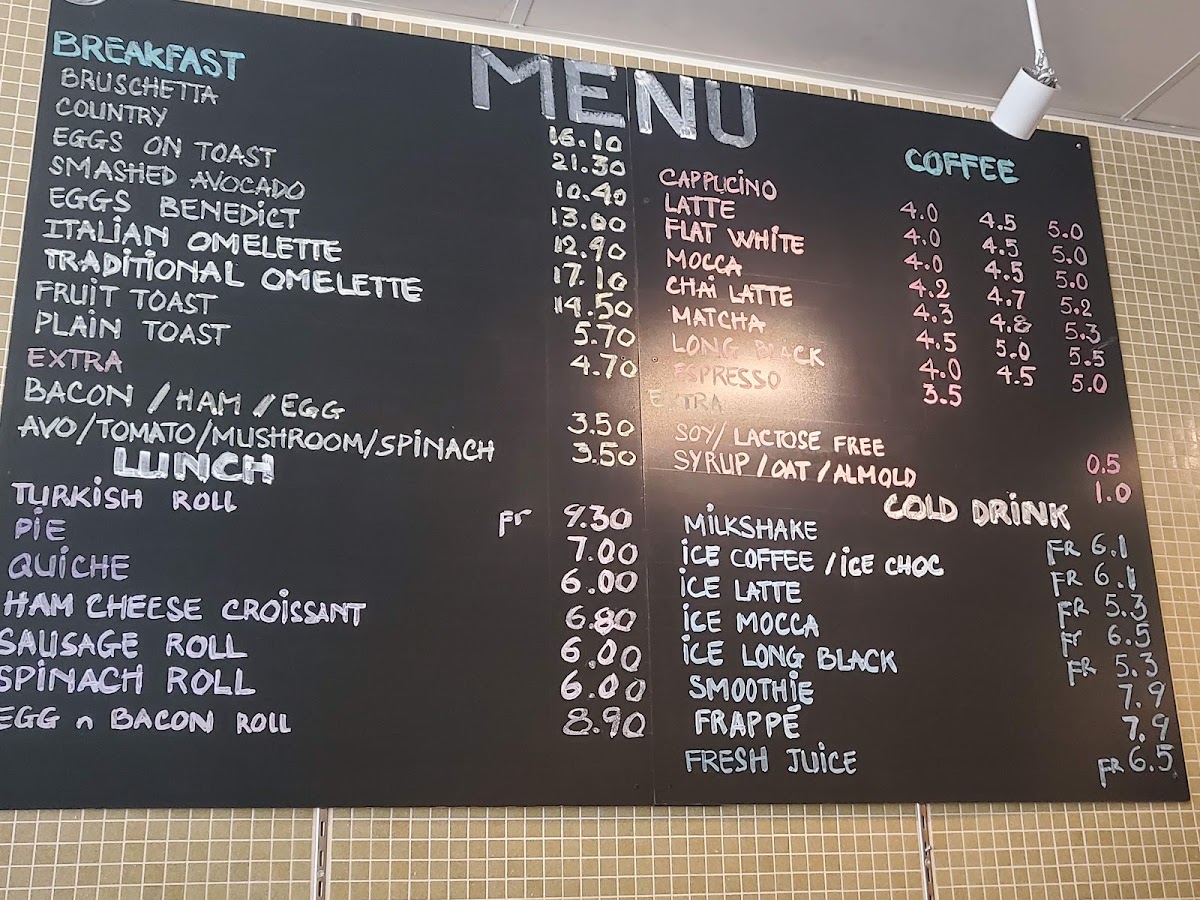 MENU
BREAKFAST
BRUSCHETTA 16.10
COUNTRY 21.30
EGGS ON TOAST 10.40
SMASHED AVOCADO 13.00
EGGS BENEDICT 12.90
ITALIAN OMELETTE 17.10
TRADITIONAL OMELETTE 14.50
FRUIT TOAST 5.70
PLAIN TOAST 4.70
EXTRA
BACON / HAM / EGG 3.50
AVO/TOMATO/MUSHROOM/SPINACH 3.50
LUNCH
TURKISH ROLL Fr 9.30
PIE 7.00
QUICHE 6.00
HAM CHEESE CROISSANT 6.80
SAUSAGE ROLL 6.00
SPINACH ROLL 6.00
EGG n BACON ROLL 8.90
COFFEE
CAPPUCINO 4.0 4.5 5.0
LATTE 4.0 4.5 5.0
FLAT WHITE 4.0 4.5 5.0
MOCCA 4.2 4.7 5.2
CHAI LATTE 4.3 4.8 5.3
MATCHA 4.5 5.0 5.5
LONG BLACK 4.0 4.5 5.0
ESPRESSO 3.5
EXTRA
SOY/ LACTOSE FREE 0.5
SYRUP /OAT /ALMOLD 1.0
COLD DRINK
MILKSHAKE FR 6.1
ICE COFFEE /ICE CHOC FR 6.1
ICE LATTE FR 5.3
ICE MOCCA Fr 6.5
ICE LONG BLACK FR 5.3
SMOOTHIE 7.9
FRAPPÉ 7.9
FRESH JUICE FR 6.5